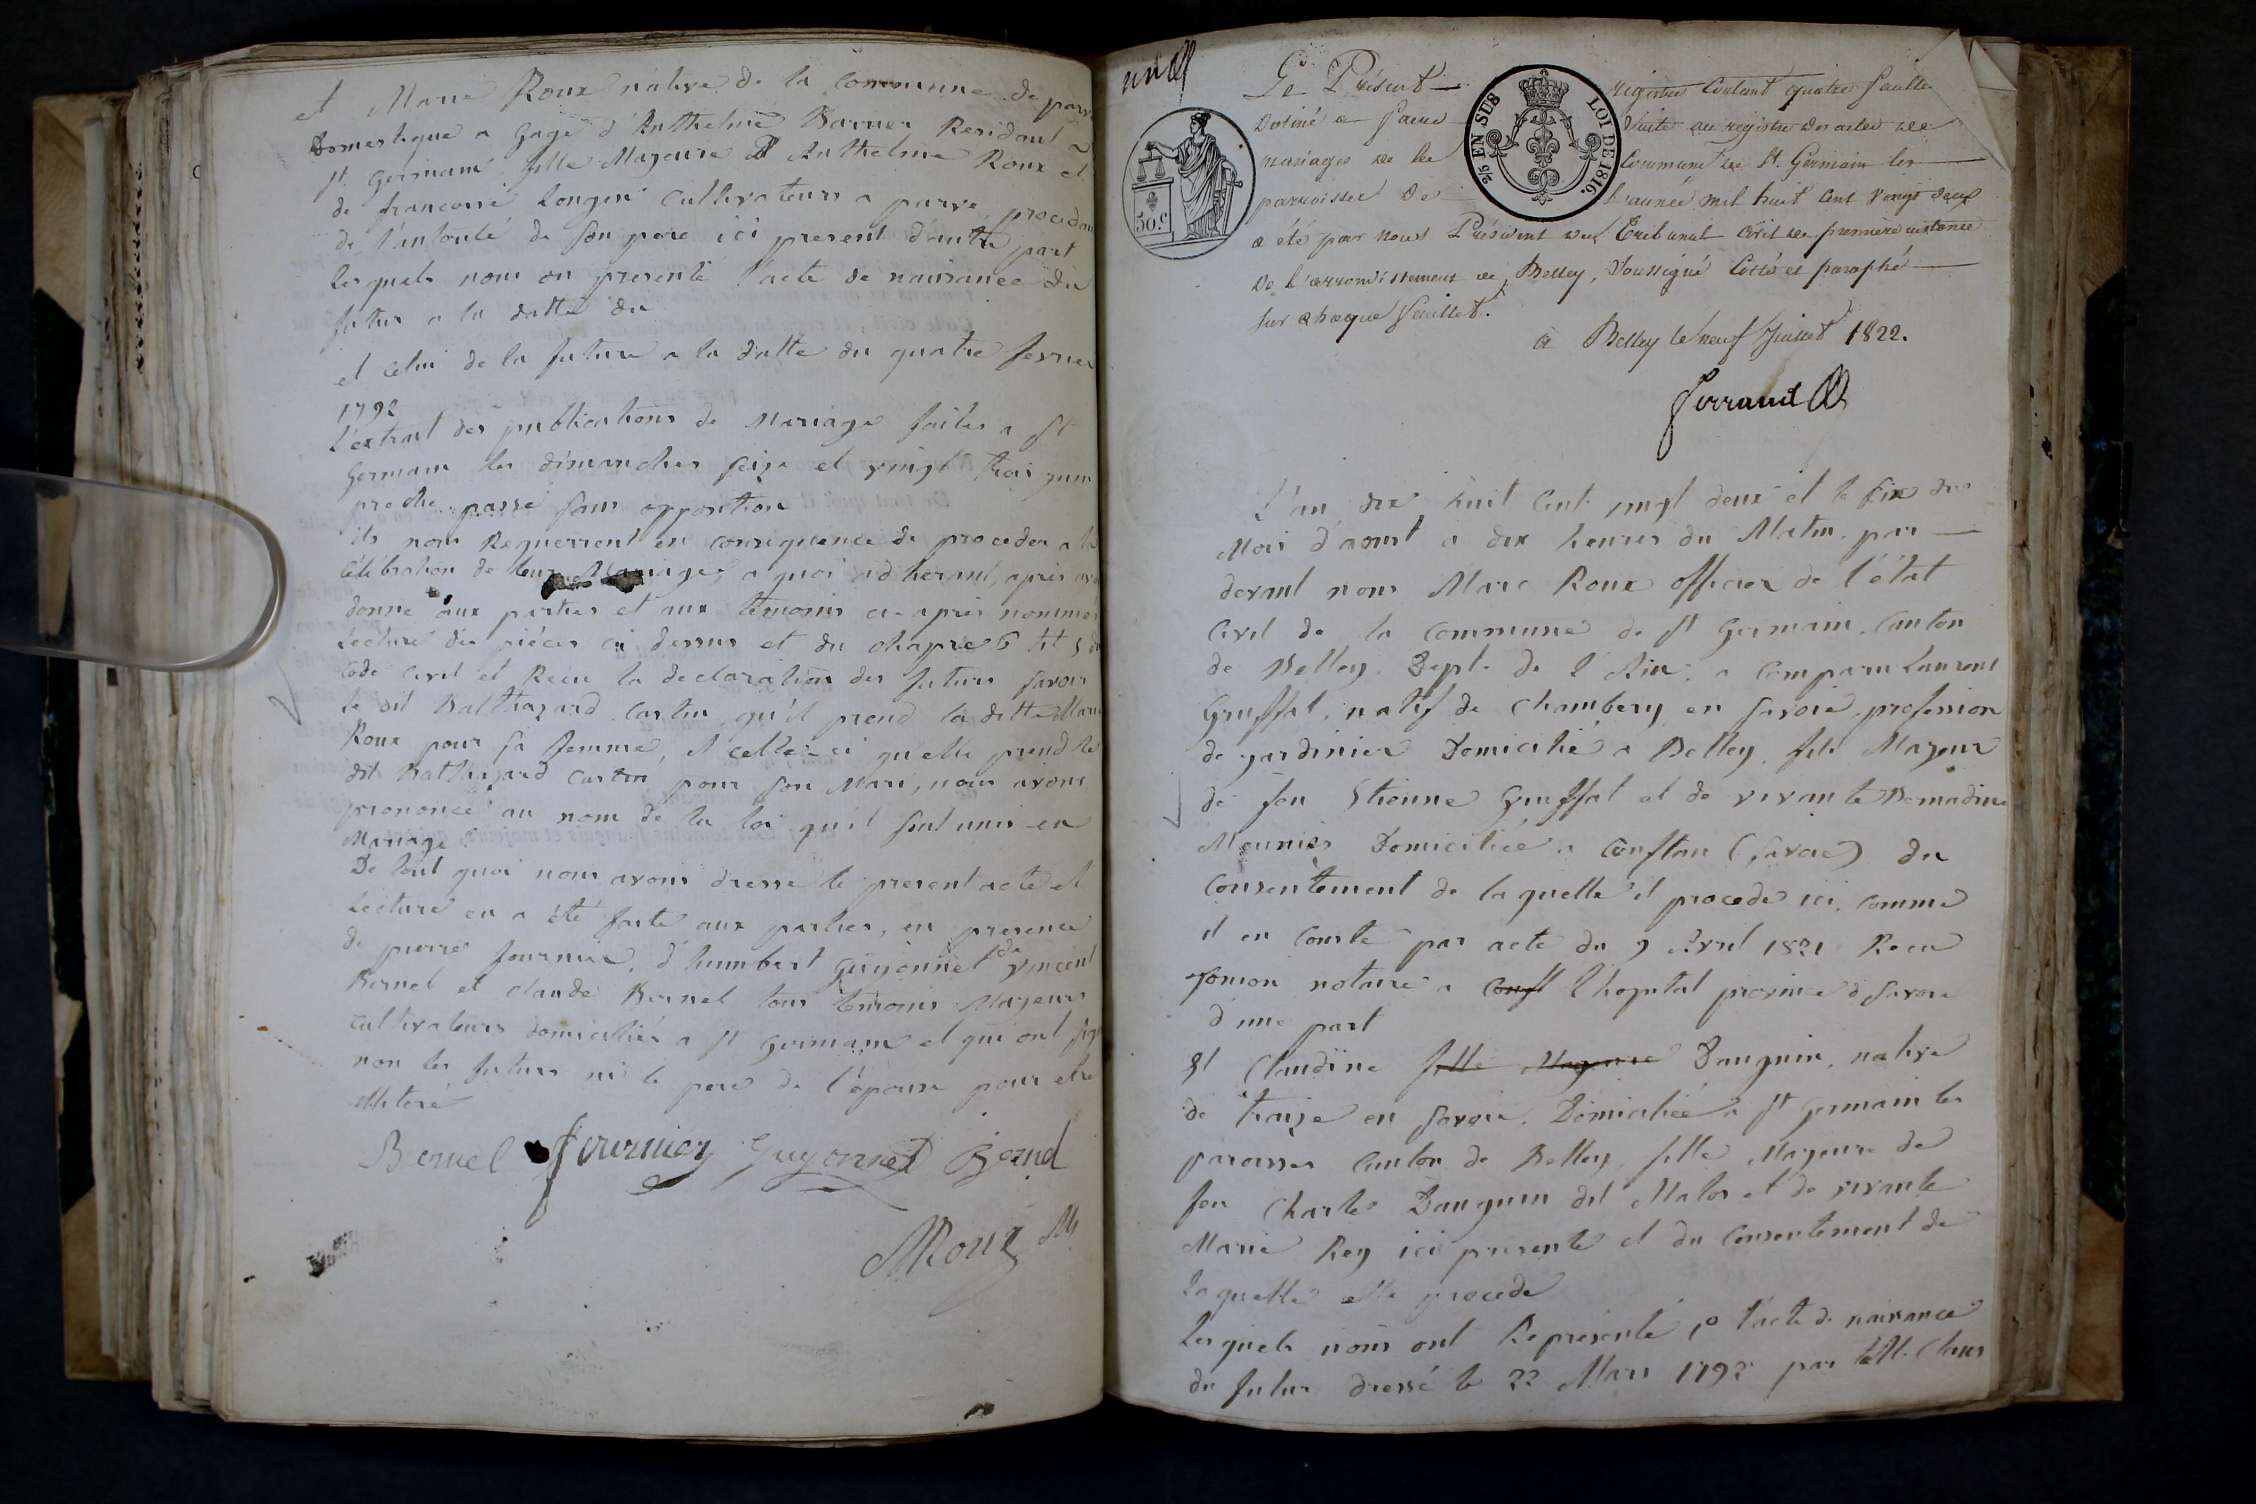 et Marie Roux native de la commune de parv
Domestique a gage d'Anthelme Barner Residant a
St Germain fille Mageure d'Anthelme Roux et
de francoise Longin cultivateurs a parve procedan
de l'autorité de son pere ici present d'autre part
lesquels nous on presenté l'acte de naissance du
futur a la datte du
et celui de la future a la datte du quatre fevrier
1792
L'extrait des publications de Mariage faites a St
Germain les dimanches seize et vingt trois juin
proche passé sans opposition
ils nous Requerrent en consequence de proceder a la
célébration de leur Mariage, a quoi adherant, après avo
donné aux parties et aux temoins ci-après nommés
Lecture des pièces ci dessus et du chapre 6 tit 5 du
code civil et Recu la declaration des futurs savoir
le dit Balthazard Castin qu'il prend la ditte Marie
Roux pour sa femme, et celle-ci qu'elle prend le
dit Balthazard Castin pour son Mari, nous avons
prononcé au nom de la loi qu'il sont unis en
Mariage
De tout quoi nous avons dressé le present acte et
Lecture en a été faite aux parties, en presence
de pierre fournier, d'humbert guyonnet de vincent
Bernel et claude Bernel tous temoins Mageurs
cultivateurs domiciliés a St germain et qui ont sig
non les futurs ni le pere de l'épouse pour etre
illiteré
Bernel fournier Guyonnet Bernel
MRoux M
un
Le Présent registre Contenant quatre feuilles
Destiné a faire Suite au registre des actes de
mariages de la Commune de St. Germain les
paroisses De l'année mil huit cent vingt deux
a été par nous Président du Tribunal Civil de première instance
De l'arrondissement de Belley, Soussigné Cotté et paraphé
sur chaque feuillet.
à Belley le neuf Juillet 1822.
Ferraud
25 EN SUS
LOI DE 1816.
50 c.
L'an dix huit cent vingt deux et le six du
Mois d'aoust a dix heures du Matin. par
devant nous Marc Roux officier de l'état
Civil de la Commune de St Germain. Canton
de Belley. Dept. de l'Ain. a comparu Laurent
Gruffat, natif de Chambery en savoie, profession
de jardinier Domicilié a Belley fils Mageur
de feu Etienne Gruffat et de vivante Bernadine
Meunier Domiciliée a Conflan (savoie) du
Consentement de laquelle il procede ici, comme
il en conste par acte du 9 Avril 1821 Recu
notaire a Confl l'hopital province d Savoie
d'une part
Et Claudine fille Mageure Dauguin, native
de traize en savoie, Domiciliée a St Germain les
paroisses Canton de Belley, fille Mageure de
feu Charles Dauguin dit Malos et de vivante
Marie Rey ici presente et du Consentement de
laquelle elle procede
Lesquels nous ont Representé, 1° l'acte de naissance
du futur dressé le 22 Mars 1792 par